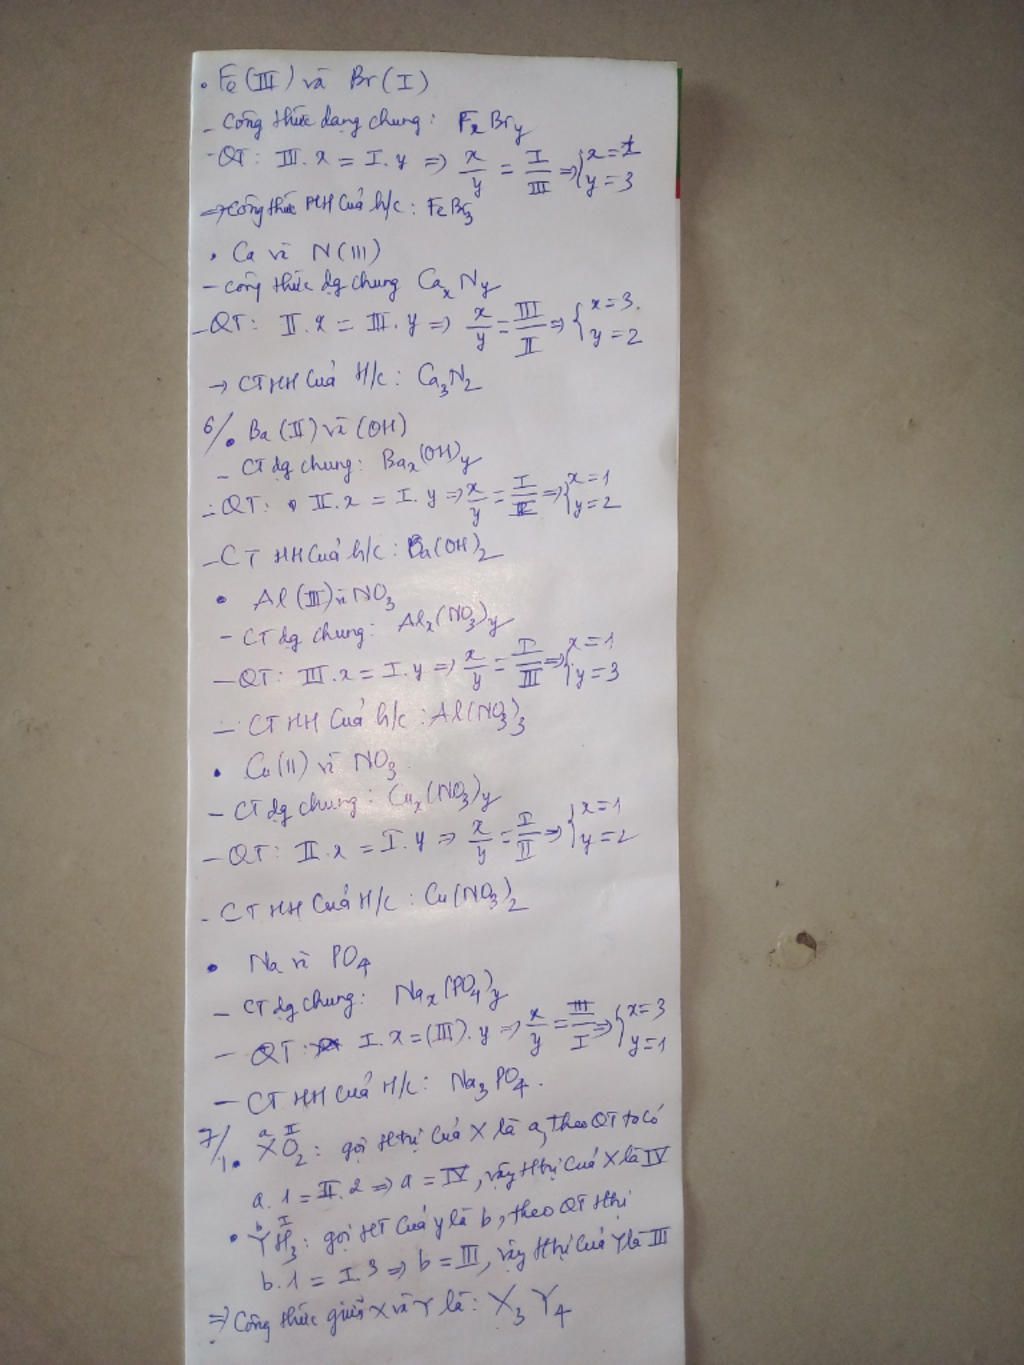 . Fe (III) và Br (I)
- Công thức dạng chung: FexBry
- QT: III.x = I.y => x/y = I/III => {x=1 y=3
=> Công thức HH của h/c: FeBr3
. Ca và N(III)
- Công thức dg chung CaxNy
- QT: II.x = III.y => x/y = III/II => {x=3. y=2
→ CTHH của H/c: Ca3N2
6/. Ba (II) và (OH)
- CT dg chung: Bax(OH)y
- QT: II.x = I.y => x/y = I/II => {x=1 y=2
- CT HH của h/c: Ba(OH)2
• Al (III) và NO3
- CT dg chung: Alx(NO3)y
- QT: III.x = I.y => x/y = I/III => {x=1 y=3
- CT HH của h/c: Al(NO3)3
• Cu(II) và NO3
- CT dg chung: Cux(NO3)y
- QT: II.x = I.y => x/y = I/II => {x=1 y=2
- CT HH của H/c: Cu(NO3)2
• Na và PO4
- CT dg chung: Nax(PO4)y
- QT: I.x = (III).y => x/y = III/I => {x=3 y=1
- CT HH của H/c: Na3PO4.
7/1. a II XO2: gọi Htrị của X là a, theo QT ta có
a.1 = II.2 => a = IV, vậy Htrị của X là IV
• b I YH3: gọi HT của Y là b, theo QT Htrị
b.1 = I.3 => b = III, vậy Htrị của Y là III
=> Công thức giữa X và Y là: X3Y4